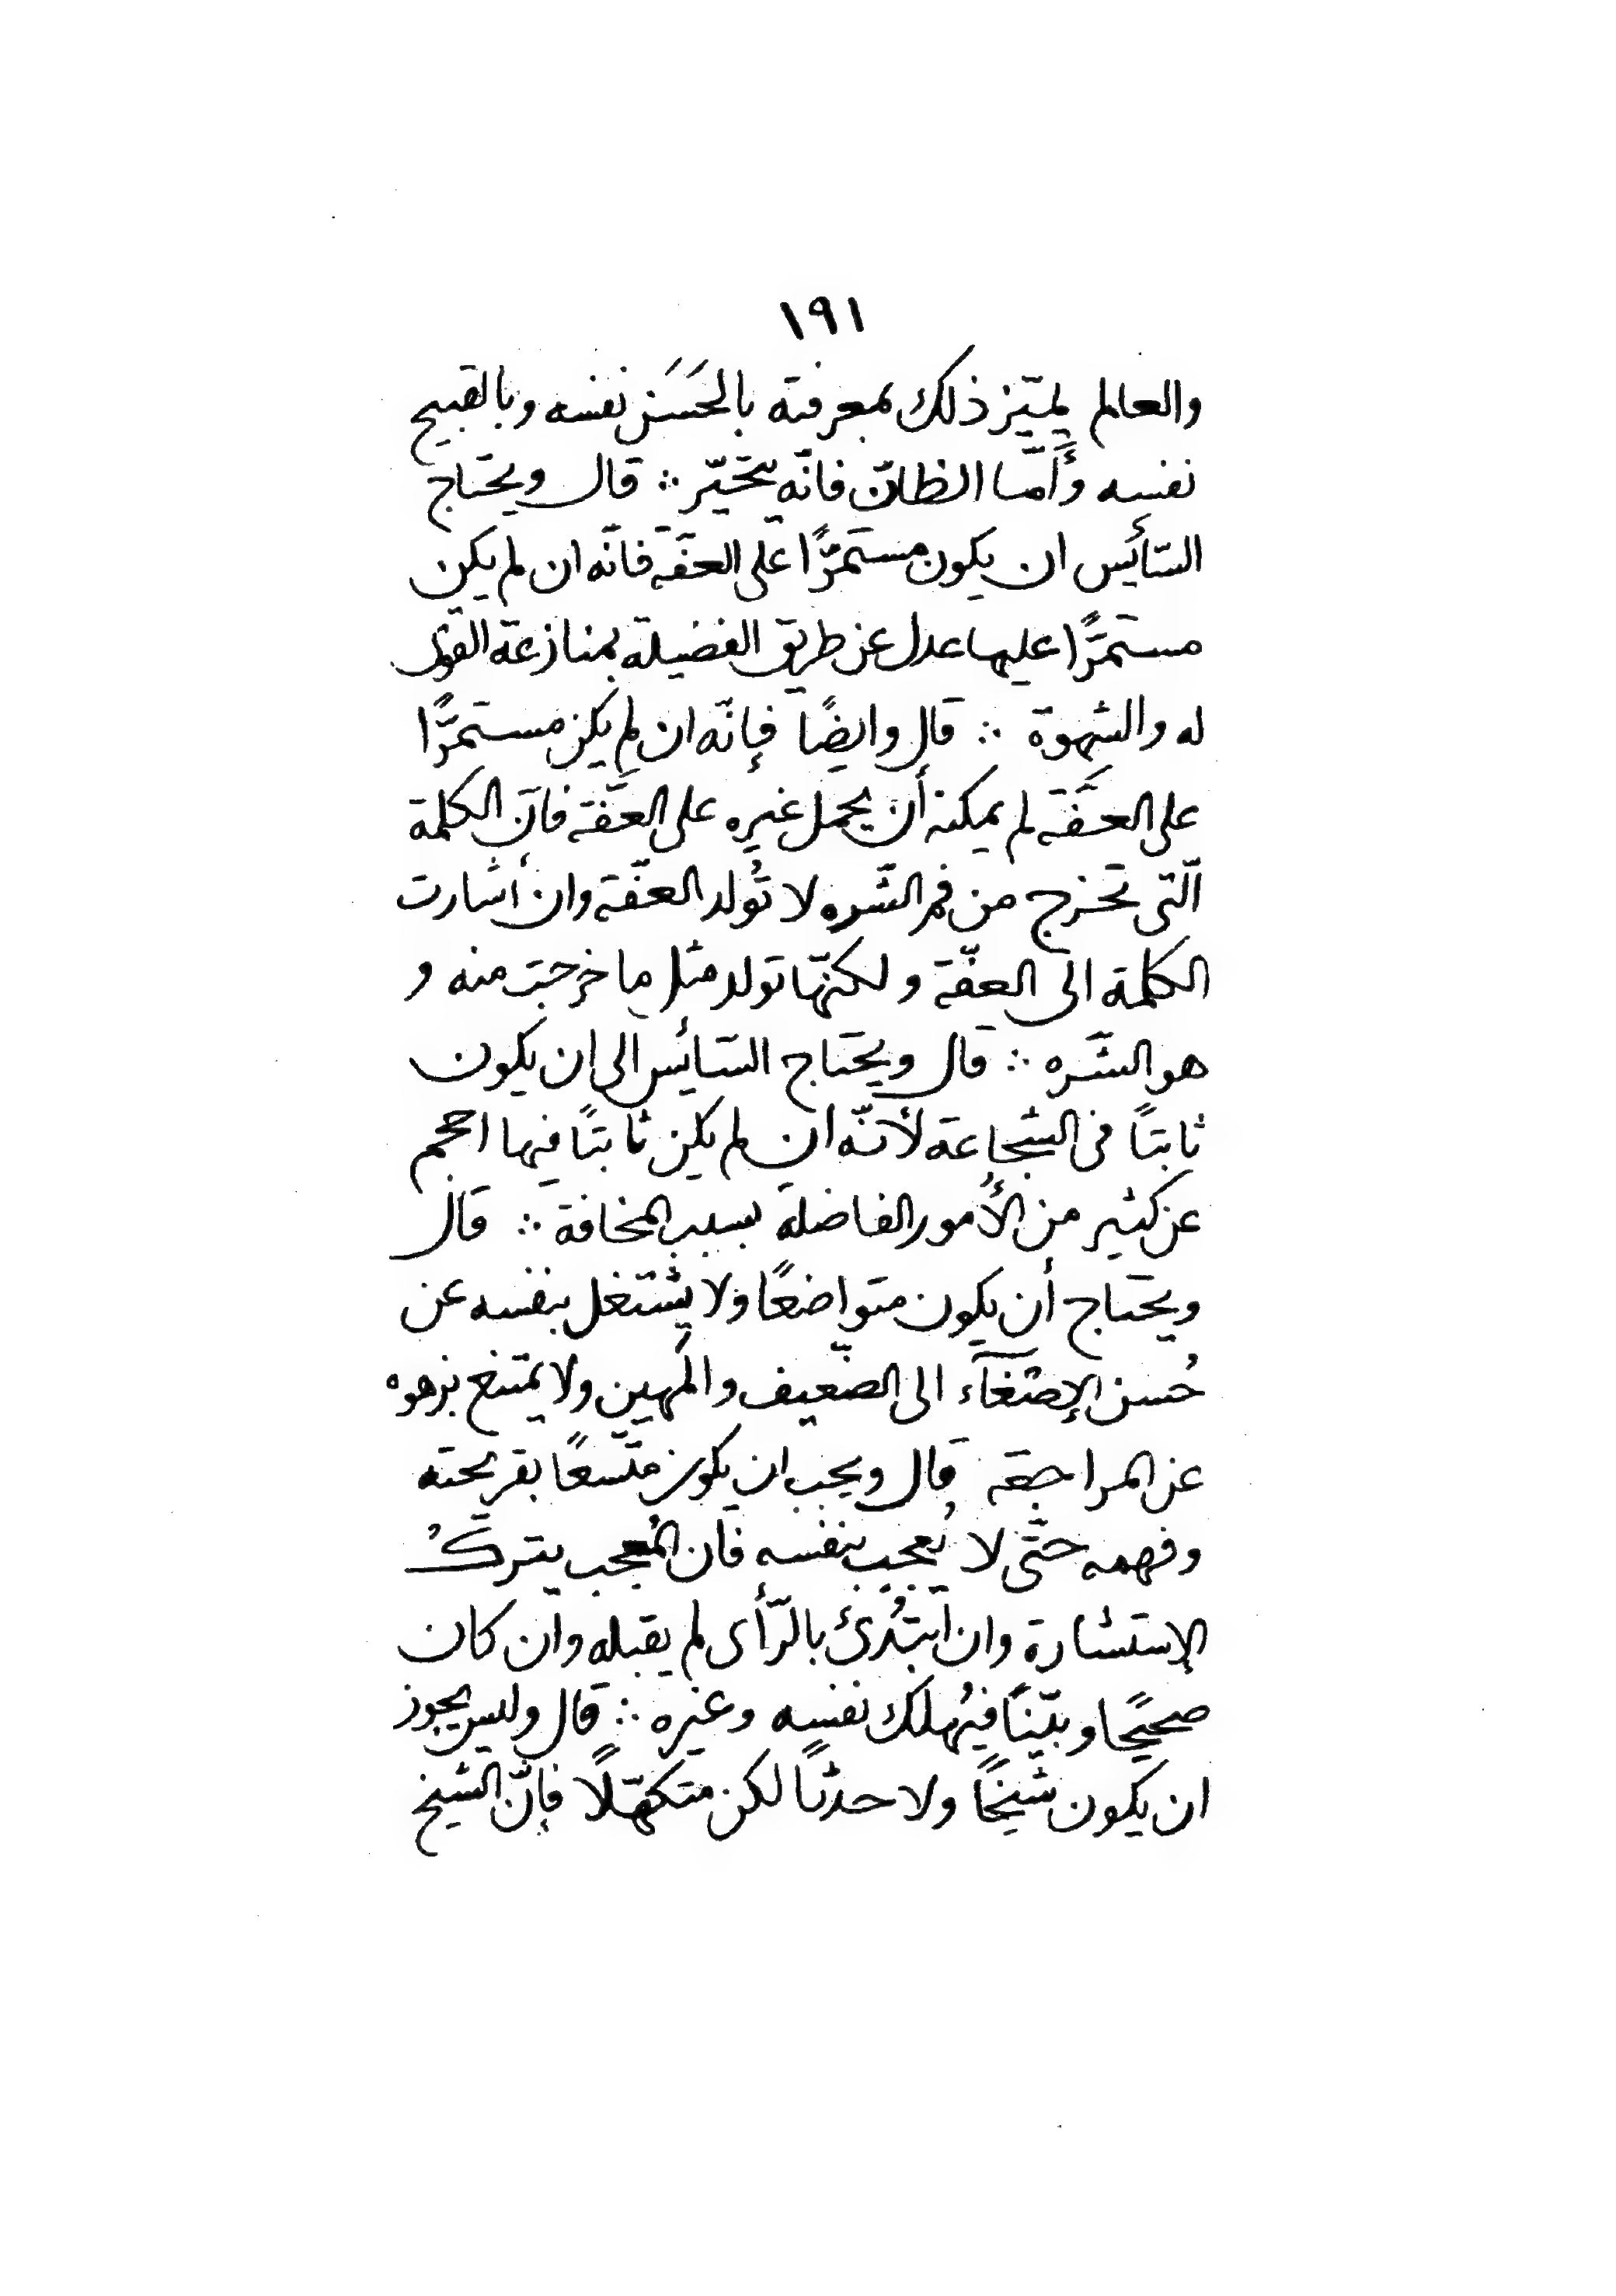 ١٩١
والعالم يميّز ذلك بمعرفته بالحَسَن نفسه وبالقبيح
نفسه وأمّا الظانّ فانّه يتحيّر ∴ قال ويحتاج
السّائس ان يكون مستمرًّا على العفّة فانّه ان لم يكن
مستمرًّا عليها عدل عن طريق الفضيلة بمنازعة القوى
له والشهوة ∴ قال وايضًا فإنّه ان لم يكن مستمرًّا
على العفّة لم يمكنه أن يحمل غيره على العفّة فانّ الكلمة
الّتى تخرج من فم الشّره لا تُولد العفّة وان أشارت
الكلمة الى العفّة ولكنّها تولد مثل ما خرجت منه و
هو الشّره ∴ قال ويحتاج السّائس الى ان يكون
ثابتًا فى الشجاعة لأنّه ان لم يكن ثابتًا فيها احجم
عن كثير من الأُمور الفاضلة بسبب المخافة ∴ قال
ويحتاج أن يكون متواضعًا ولا يشتغل بنفسه عن
حُسن الإصْغآء الى الضّعيف والمَهين ولا يمتنع بزهوه
عن المراجعة قال ويجب ان يكون متّسعًا بقريحته
وفهمه حتّى لا يُعجب بنفسه فان المُعجب يترك
الإستشارة وان ابتُدئ بالرّأى لم يقبله وان كان
صحيحًا وبيّنًا فيُهلك نفسه وغيره ∴ قال وليس يجوز
ان يكون شيخًا ولا حدثًا لكن متكهّلًا فإنّ الشيخ